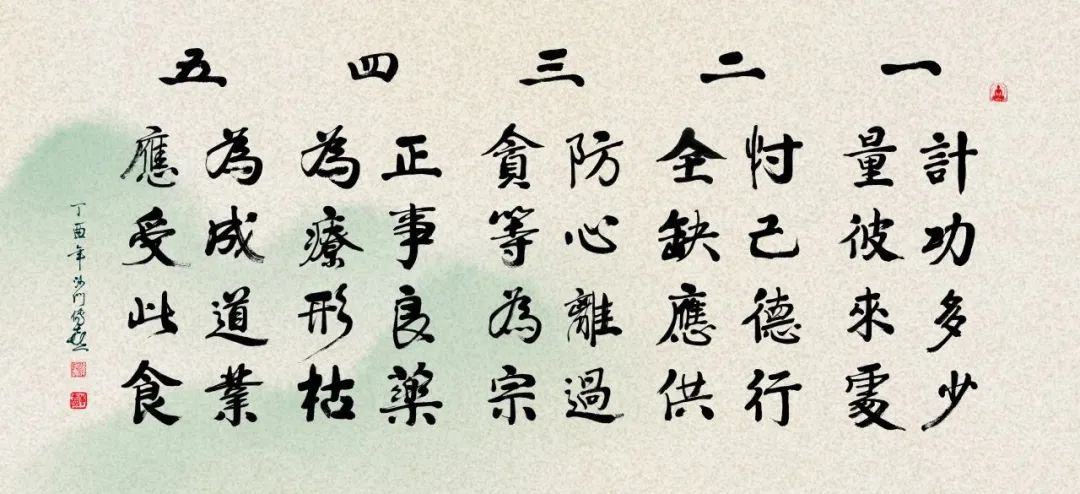 一
計功多少
量彼來處
二
忖己德行
全缺應供
三
防心離過
貪等為宗
四
正事良藥
為療形枯
五
為成道業
應受此食
丁酉年沙門傳